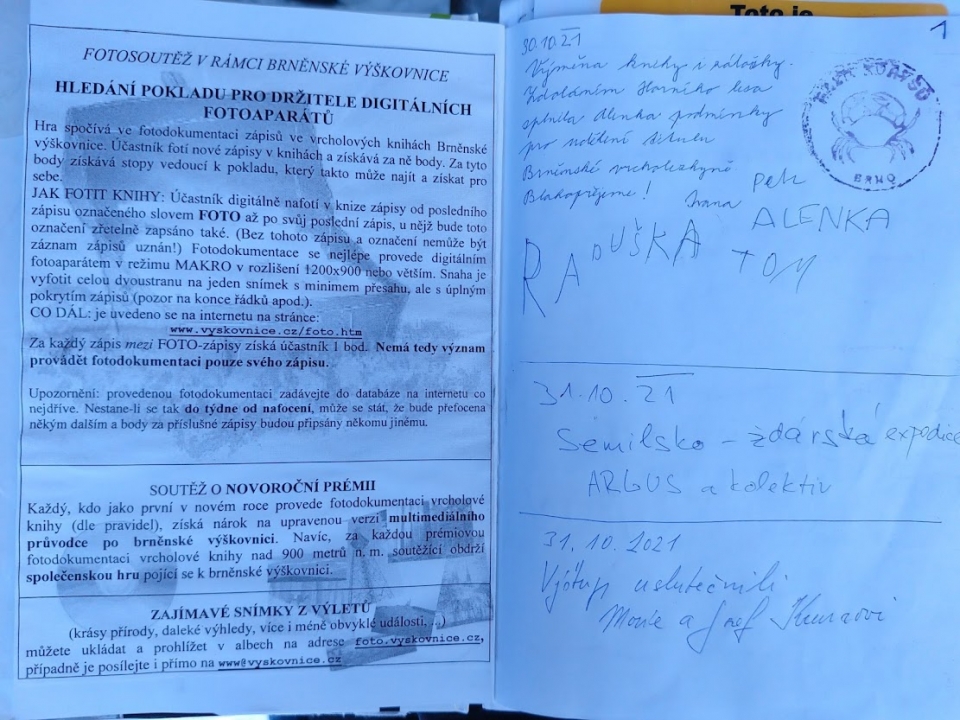 FOTOSOUTĚŽ V RÁMCI BRNĚNSKÉ VÝŠKOVNICE
HLEDÁNÍ POKLADU PRO DRŽITELE DIGITÁLNÍCH
FOTOAPARÁTŮ
Hra spočívá ve fotodokumentaci zápisů ve vrcholových knihách Brněnské
výškovnice. Účastník fotí nové zápisy v knihách a získává za ně body. Za tyto
body získává stopy vedoucí k pokladu, který takto může najít a získat pro
sebe.
JAK FOTIT KNIHY: Účastník digitálně nafotí v knize zápisy od posledního
zápisu označeného slovem FOTO až po svůj poslední zápis, u nějž bude toto
označení zřetelně zapsáno také. (Bez tohoto zápisu a označení nemůže být
záznam zápisů uznán!) Fotodokumentace se nejlépe provede digitálním
fotoaparátem v režimu MAKRO v rozlišení 1200x900 nebo větším. Snaha je
vyfotit celou dvoustranu na jeden snímek s minimem přesahu, ale s úplným
pokrytím zápisů (pozor na konce řádků apod.).
CO DÁL: je uvedeno se na internetu na stránce:
www.vyskovnice.cz/foto.htm
Za každý zápis mezi FOTO-zápisy získá účastník 1 bod. Nemá tedy význam
provádět fotodokumentaci pouze svého zápisu.
Upozornění: provedenou fotodokumentaci zadávejte do databáze na internetu co
nejdříve. Nestane-li se tak do týdne od nafocení, může se stát, že bude přefocena
někým dalším a body za příslušné zápisy budou připsány někomu jinému.
SOUTĚŽ O NOVOROČNÍ PRÉMII
Každý, kdo jako první v novém roce provede fotodokumentaci vrcholové
knihy (dle pravidel), získá nárok na upravenou verzi multimediálního
průvodce po brněnské výškovnici. Navíc, za každou prémiovou
fotodokumentaci vrcholové knihy nad 900 metrů n. m. soutěžící obdrží
společenskou hru pojící se k brněnské výškovnici.
ZAJÍMAVÉ SNÍMKY Z VÝLETŮ
(krásy přírody, daleké výhledy, více i méně obvyklé události, ...)
můžete ukládat a prohlížet v albech na adrese foto.vyskovnice.cz,
případně je posílejte i přímo na www@vyskovnice.cz
Toto je
1
30.10.21
Výměna knihy i záložky.
Zdoláním Horního lesa
splnila Alenka podmínky
pro udělení titulu
Brněnské vrcholezkyně
Blahopřejeme!
BRNO
Petr
Ivana
ALENKA
RADUŠKA
TOM
31.10.21
Semilsko - žďárská expedice
ARGUS a kolektiv
31.10.2021
Výstup uskutečnili
a Josef